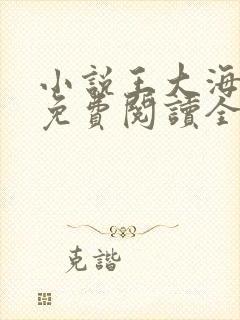 小說王大海
免費閱讀全
克諧